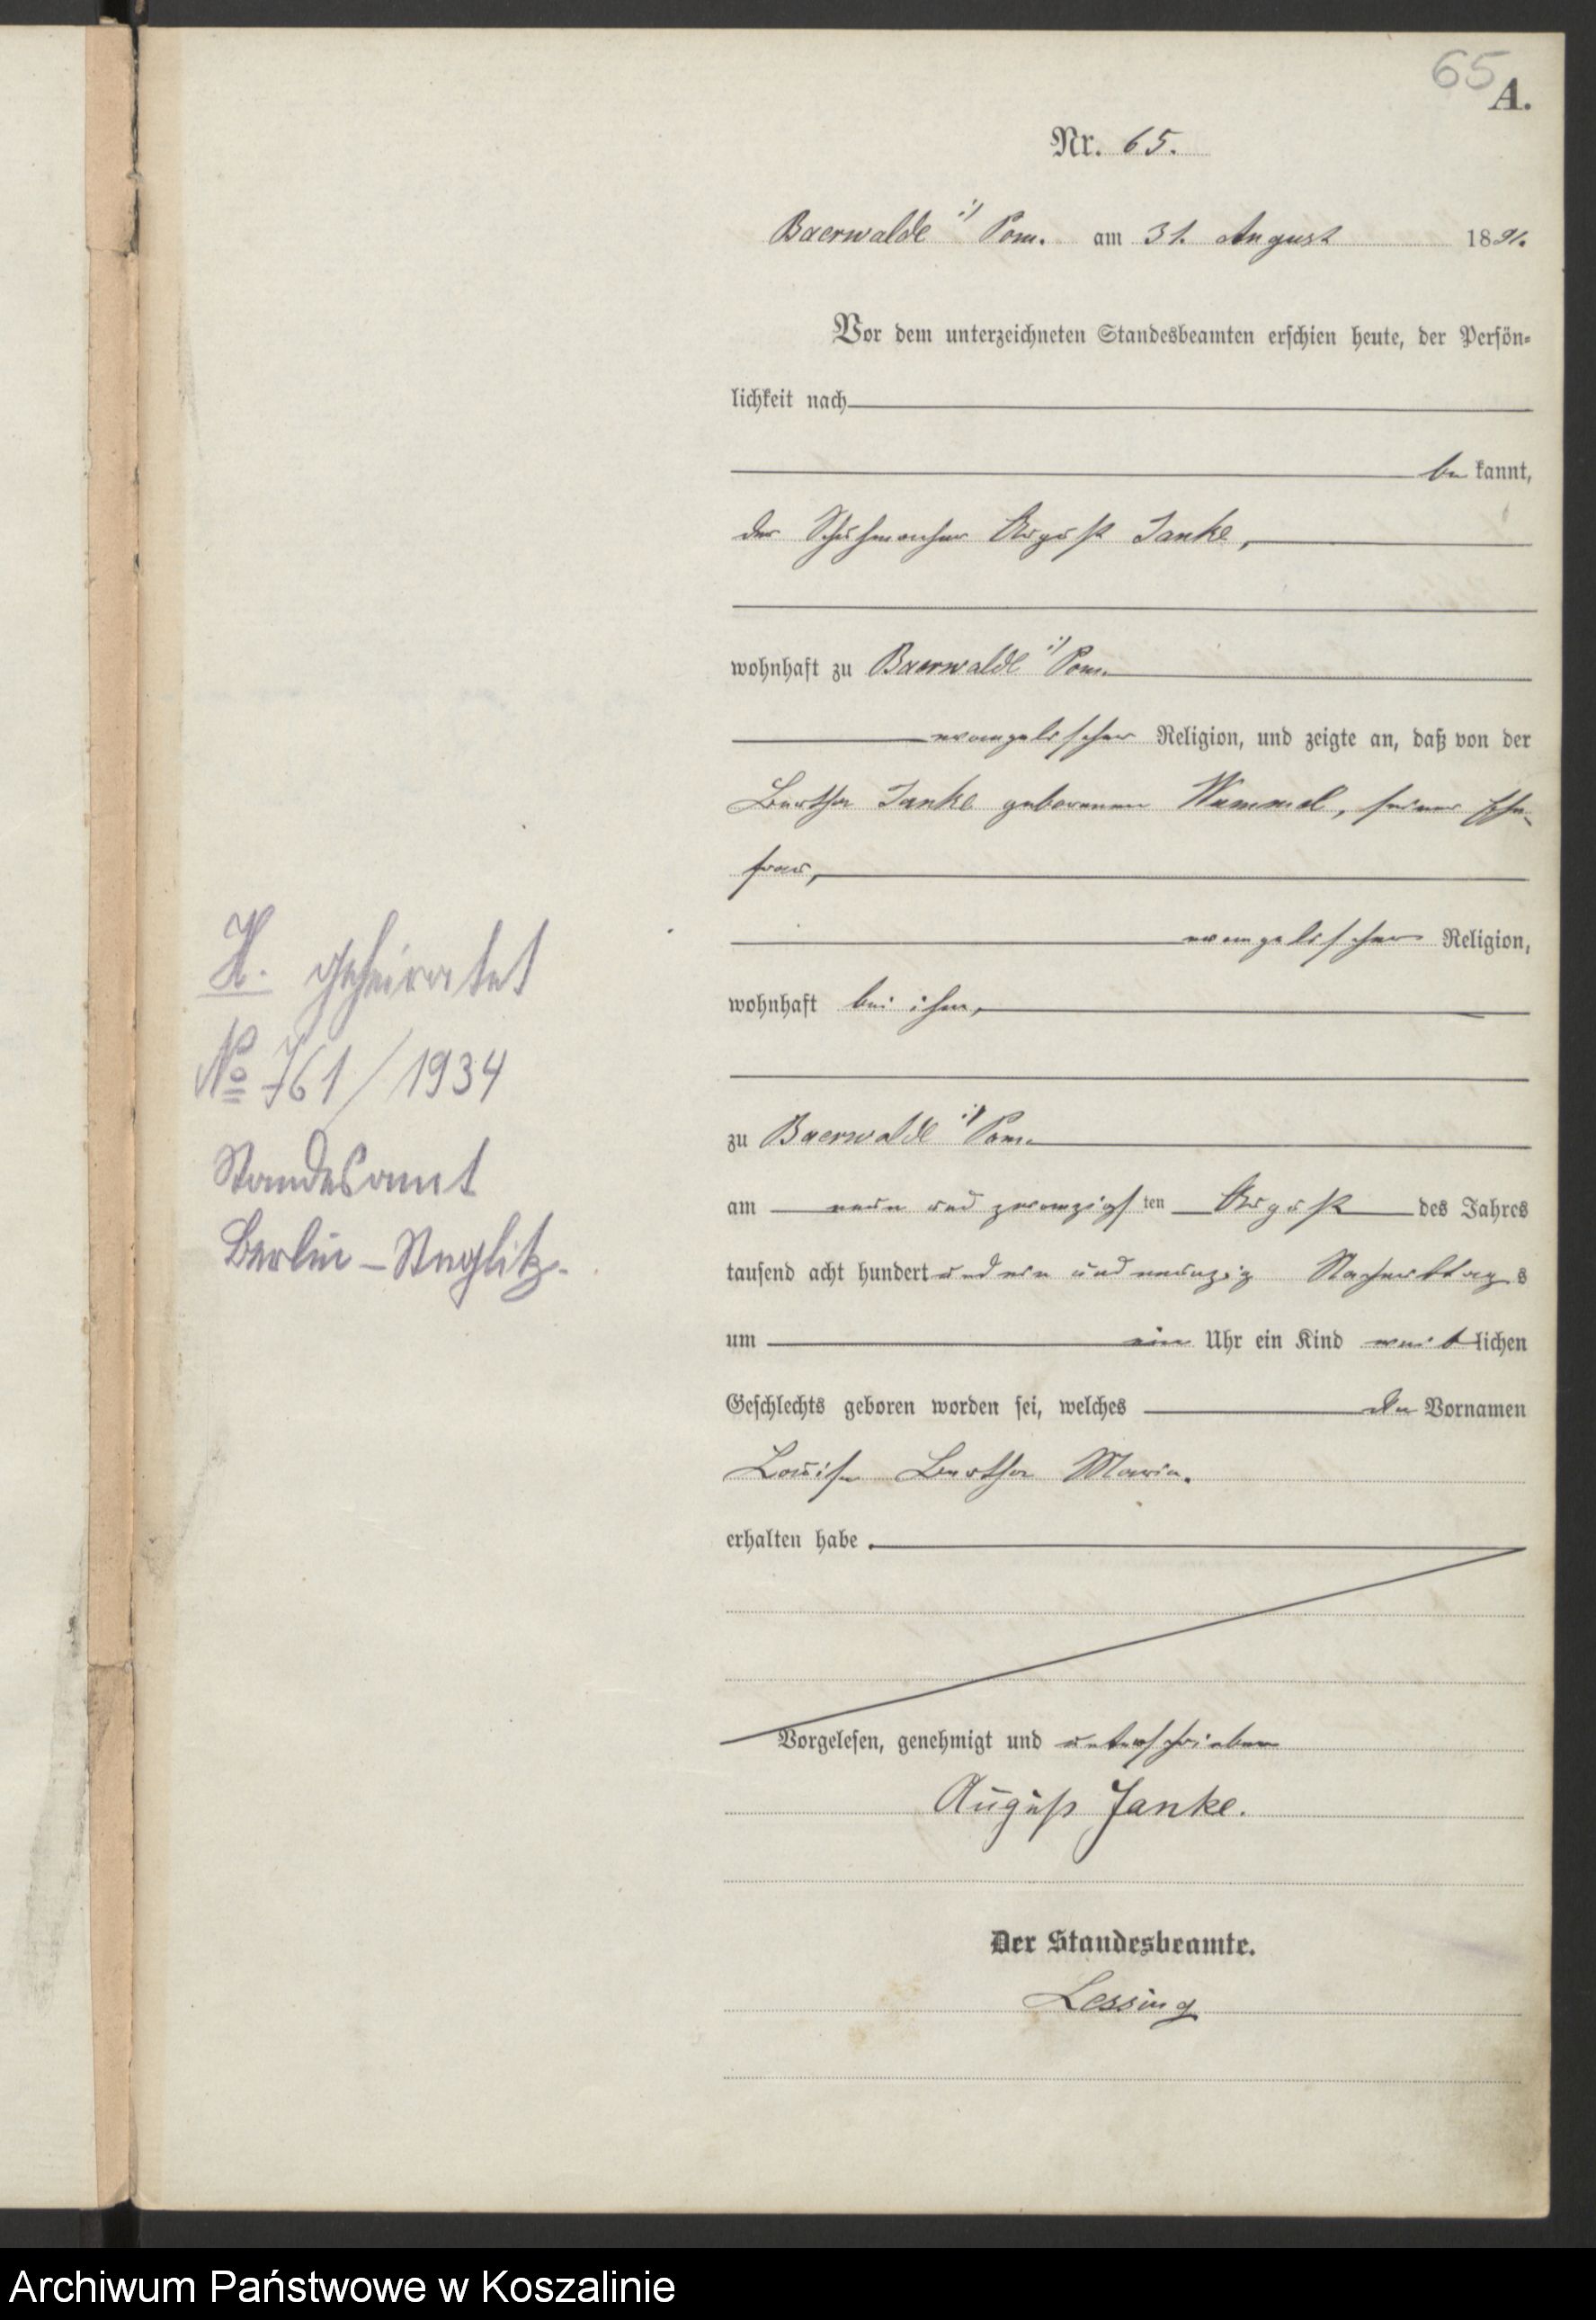 65
A.
Nr. 65.
Baerwalde i/ Pom. am 31. August 1891.
Vor dem unterzeichneten Standesbeamten erschien heute, der Persön-
lichkeit nach
be kannt,
der Schuhmacher August Janke,
wohnhaft zu Baerwalde i/ Pom.
evangelischer Religion, und zeigte an, daß von der
Bertha Janke geborenen Wummel, seiner Ehe-
frau,
evangelischer Religion,
wohnhaft bei ihm,
zu Baerwalde i/ Pom.
am neun und zwanzigsten August des Jahres
tausend acht hundert und ein und neunzig Nachmittags
um ein Uhr ein Kind weiblichen
Geschlechts geboren worden sei, welches die Vornamen
Louise Bertha Marie.
erhalten habe.
Vorgelesen, genehmigt und unterschrieben
August Janke.
Der Standesbeamte.
Lessing
H. geheiratet
No 761/1934
Standesamt
Berlin-Steglitz.
Archiwum Państwowe w Koszalinie